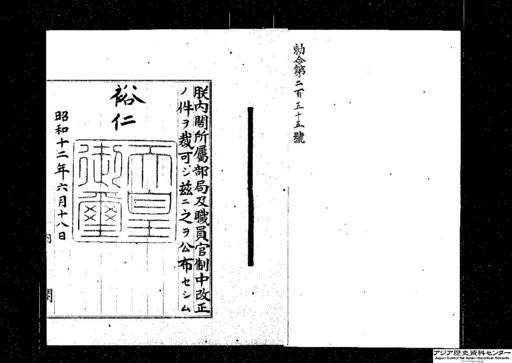 勅令第二百五十五號
朕内閣所屬部局及職員官制中改正
ノ件ヲ裁可シ茲ニ之ヲ公布セシム
裕仁
天皇御璽
昭和十二年六月十八日
内閣
アジア歴史資料センター
Japan Center for Asian Historical Records